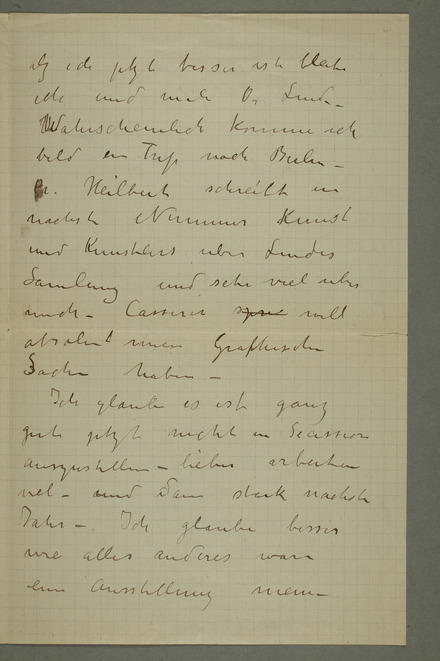 ich jetzt besser ist bleibe
ich und male Dr Linde_
Wahrscheinlich komme ich
bald en Trip nach Berlin_
Dr. Heilbut schreibt in
nachste Nummer Kunst
und Kunstlers uber Lindes
Samlung und sehr viel uber
mich_ Cassirer will
absolut mein Grafhische
Sachen haben_
Ich glaube es ist ganz
gut jetzt nicht in Secission
auszustellen_ lieber arbeiten
viel_ und dann stark nachste
Jahr_ Ich glaube besser
wie alles anderes ware
eine Ausstellung meine